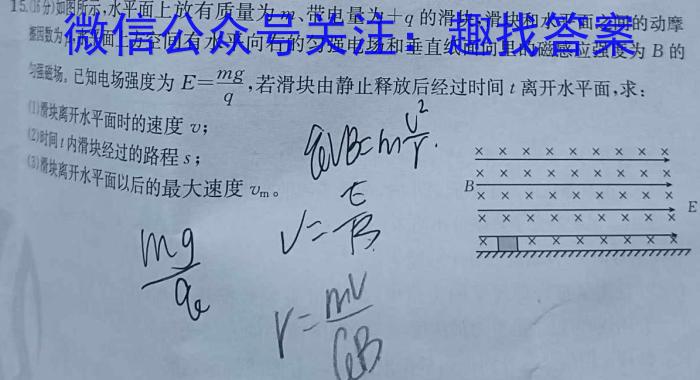 15.(16分)如图所示,水平面上放有质量为m、带电量为+q的滑块,滑块和水平面之间的动摩
擦因数为
微信公众号关注：趣找答案
水平向右的匀强电场和垂直纸面向里的磁感应强度为B的
匀强磁场。已知电场强度为E=mg/q,若滑块由静止释放后经过时间t离开水平面,求:
(1)滑块离开水平面时的速度v;
(2)时间t内滑块经过的路程s;
(3)滑块离开水平面以后的最大速度vm。
qVB=m v²/r.
V=E/B
mg/q
r=mv/qB
× × × × × × × × × ×
× × × × × × × × × ×
B
× × × × × × × × × ×
E
× × × × × × × × ×